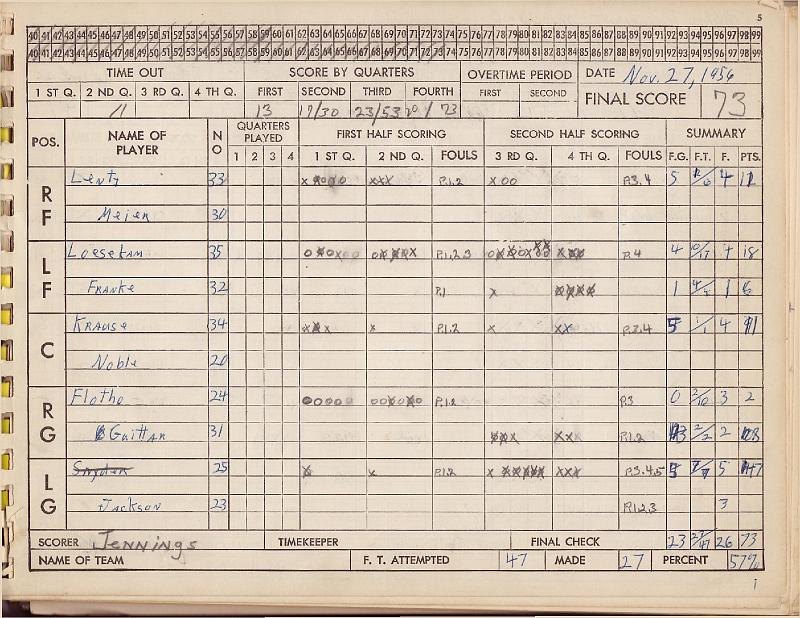 5
40 41 42 43 44 45 46 47 48 49 50 51 52 53 54 55 56 57 58 59 60 61 62 63 64 65 66 67 68 69 70 71 72 73 74 75 76 77 78 79 80 81 82 83 84 85 86 87 88 89 90 91 92 93 94 95 96 97 98 99
40 41 42 43 44 45 46 47 48 49 50 51 52 53 54 55 56 57 58 59 60 61 62 63 64 65 66 67 68 69 70 71 72 73 74 75 76 77 78 79 80 81 82 83 84 85 86 87 88 89 90 91 92 93 94 95 96 97 98 99
TIME OUT SCORE BY QUARTERS OVERTIME PERIOD DATE Nov. 27, 1956
1 ST Q. 2 ND Q. 3 RD Q. 4 TH Q. FIRST SECOND THIRD FOURTH FIRST SECOND FINAL SCORE 73
11 13 17/30 23/53 20/73
POS. NAME OF PLAYER NO QUARTERS PLAYED FIRST HALF SCORING SECOND HALF SCORING SUMMARY
1 2 3 4 1 ST Q. 2 ND Q. FOULS 3 RD Q. 4 TH Q. FOULS F.G. F.T. F. PTS.
RF Lentz 33 xxx P.1.2 xoo P.3.4 5 4
Meier 30
LF Loesekam 35 P.1.2.3 P.4 4 10/17 4 18
Franke 32 P.1 x 1 4/4 1 6
C Krause 34 x P.1.2 x xx P.3.4 5 1/1 4 11
Noble 20
RG Flotho 24 ooooo P.1.2 P.3 0 2/10 3 2
Guittar 31 P.1.2 3 2/2 2 8
LG Snyder 25 x x P.1.2 P.3.4.5 5 7/7 5 17
Jackson 23 P.1.2.3 3
SCORER Jennings TIMEKEEPER FINAL CHECK 23 27/47 26 73
NAME OF TEAM F. T. ATTEMPTED 47 MADE 27 PERCENT 57%